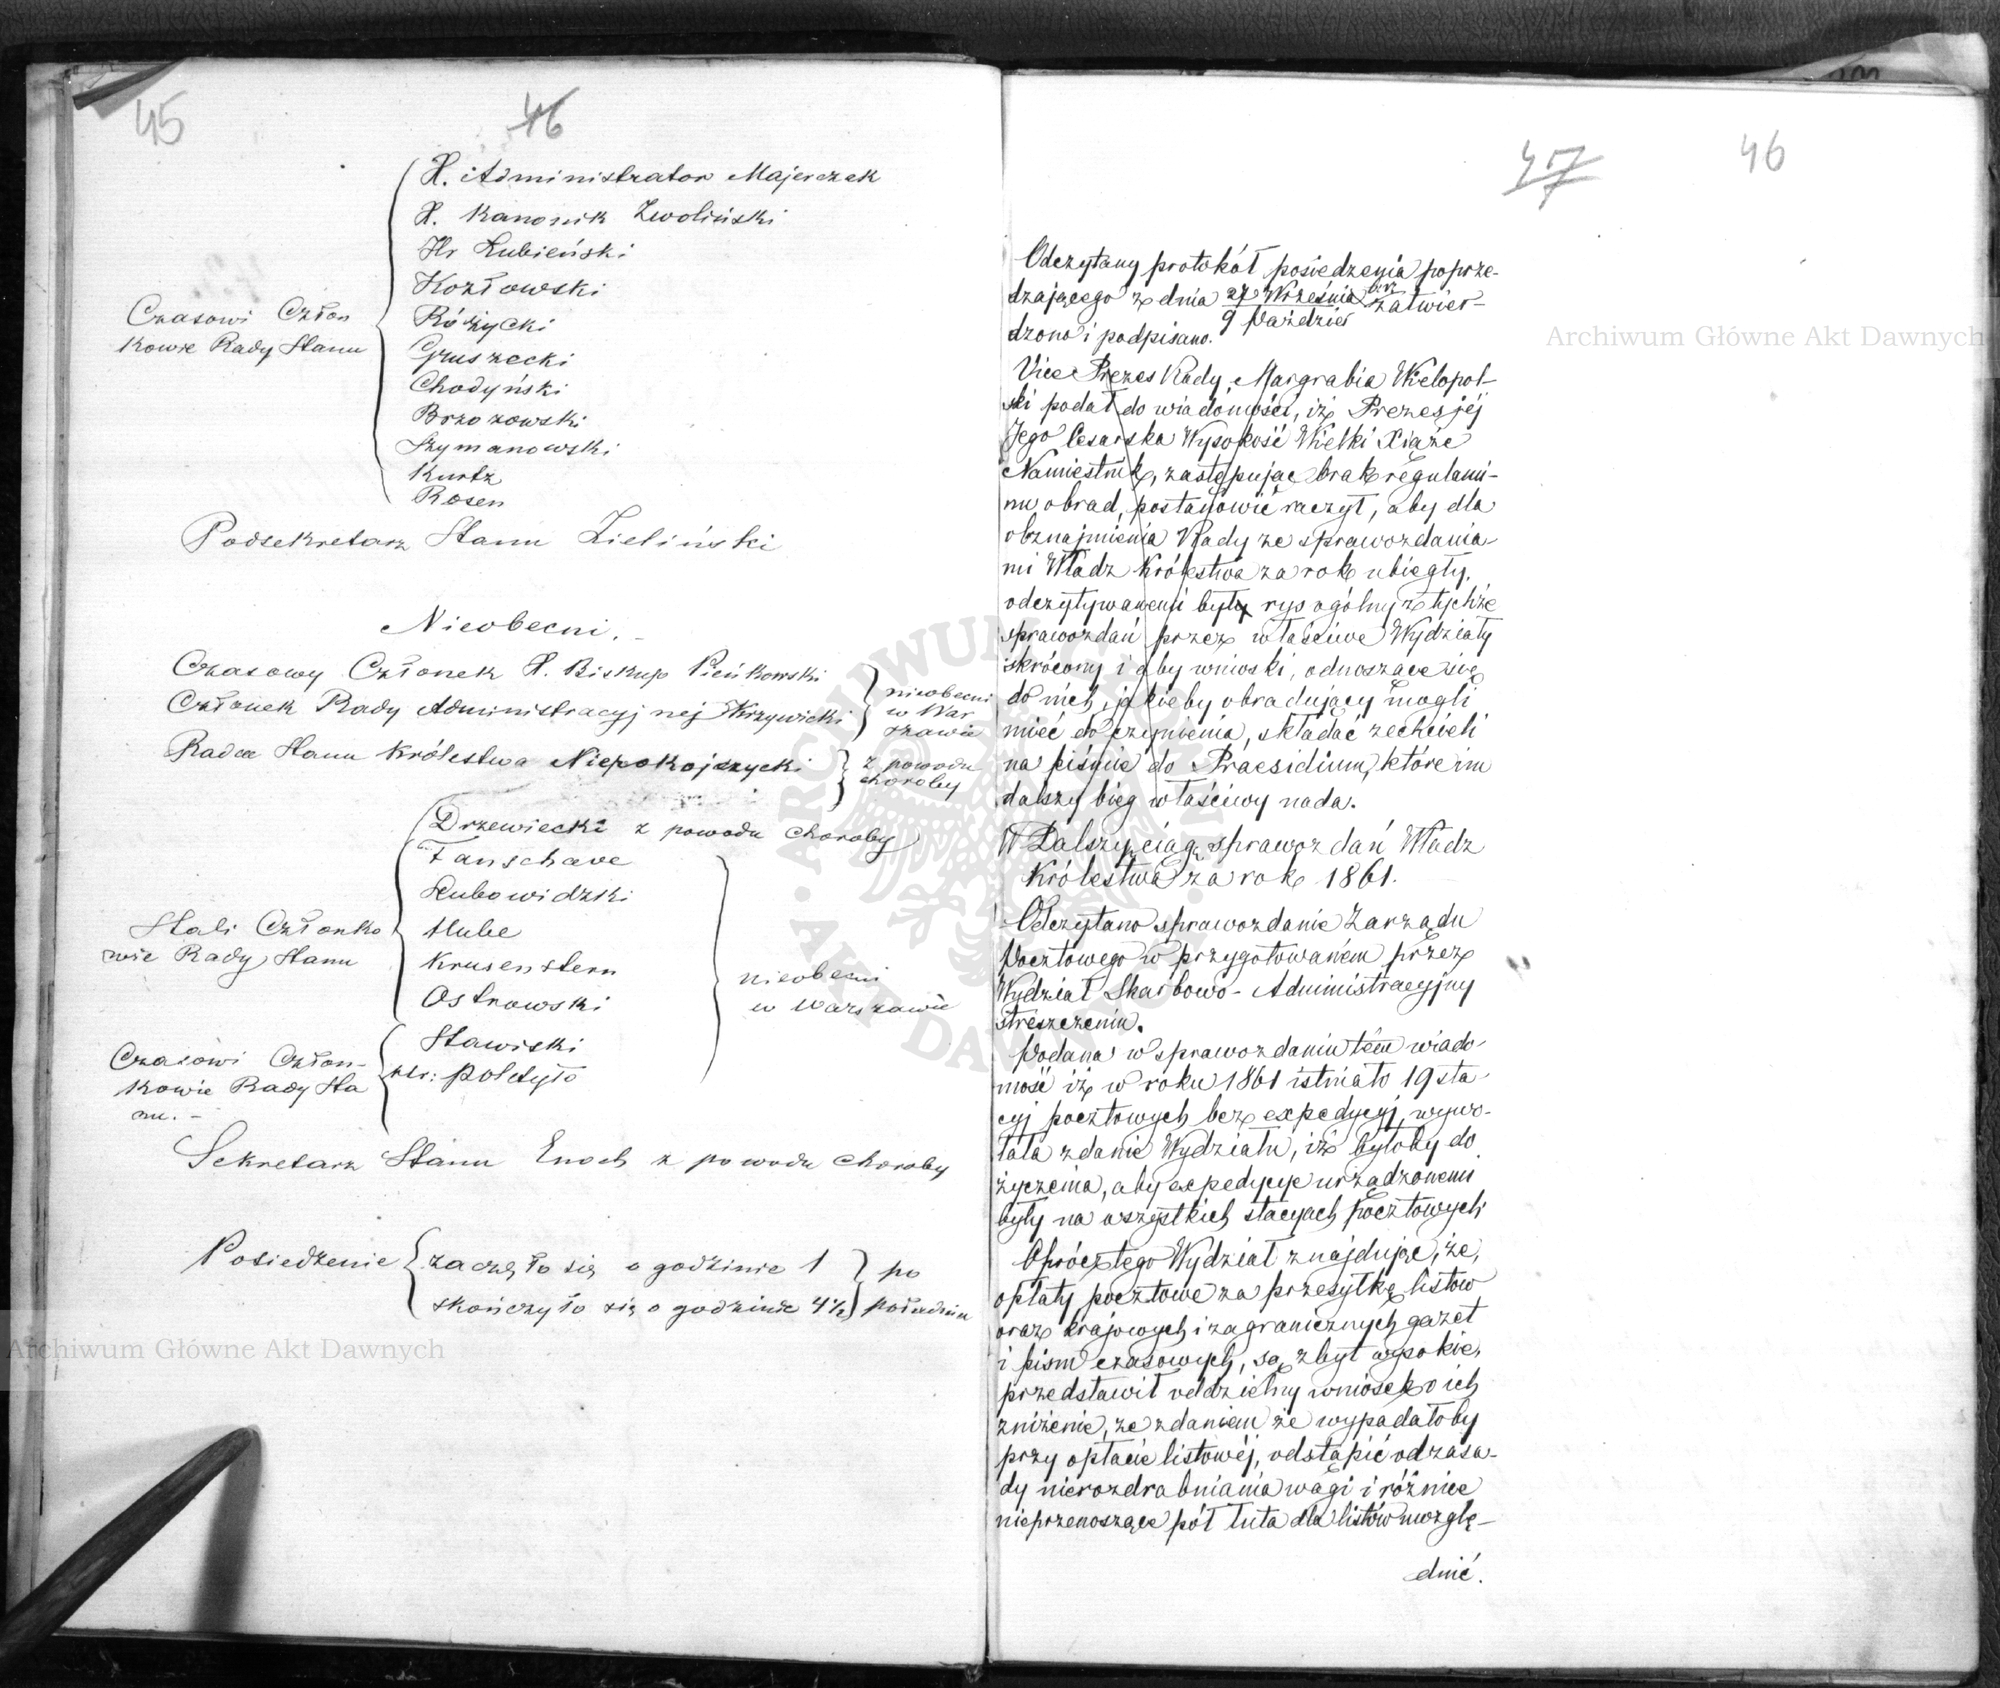 45
46
X. Administrator Majerczak
X. Kanonik Zwoliński
Hr Łubieński
Kozłowski
Różycki
Gruszecki
Chodyński
Brzozowski
Szymanowski
Kurtz
Rosen
Czasowi Człon
kowie Rady Stanu
Podsekretarz Stanu Zieliński
Nieobecni.
Czasowy Członek X. Biskup Pieńkowski
Członek Rady Administracyjnej Krzywicki
nieobecni
w War
szawie
Radca Stanu Królestwa Niepokojczycki
z powodu
choroby
Drzewiecki z powodu choroby
Fanschave
Łubowidzki
Hube
Krusenstern
Ostrowski
Stali Członko
wie Rady Stanu
nieobecni
w Warszawie
Stawiski
Hr: Poletyło
Czasowi Człon-
kowie Rady Sta
nu. -
Sekretarz Stanu Enoch z powodu choroby
Posiedzenie
zaczęło się o godzinie 1
skończyło się o godzinie 4½
po
południu
47
46
Odczytany protokół posiedzenia poprze-
dzającego z dnia 27 Września
9 Paździer
bez zatwier-
dzono i podpisano.
Vice Prezes Rady, Margrabia Wielopol-
ski podał do wiadomości, iż Prezes jéj
Jego Cesarska Wysokość Wielki Xiąże
Namiestnik, zastępując brak regulami-
nu obrad, postanowić raczył, aby dla
obznajmienia Rady ze sprawozdania-
mi Władz Królestwa za rok ubiegły,
odczytywanemi były rys ogólny z tychże
sprawozdań przez właściwe Wydziały
skrócony i aby wnioski, odnoszące się
do nich, jakieby obradujący mogli
mieć do czynienia, składać zechcieli
na piśmie do Praesidium, które im
dalszy bieg właściwy nada.
W Dalszy ciąg sprawozdań Władz
Królestwa za rok 1861.
Odczytano sprawozdanie Zarządu
Pocztowego w przygotowaném przez
Wydział Skarbowo-Administracyjny
streszczeniu.
Podana w sprawozdaniu tém wiado-
mość iż w roku 1861 istniało 19 sta-
cyj pocztowych bez expedycyj, wywo-
łała zdanie Wydziału, iż byłoby do
życzenia, aby expedycye urządzonemi
były na wszystkich stacyach pocztowych
Oprócz tego Wydział znajdując, że,
opłaty pocztowe za przesyłkę listów
oraz krajowych i zagranicznych gazet
i pism czasowych, są zbyt wysokie,
przedstawił oddzielny wniosek o ich
zniżenie, ze zdaniem że wypadałoby
przy opłacie listowéj, odstąpić od zasa-
dy nierozdrabniania wagi i różnice
nieprzenoszące pół łuta dla listów uwzglę-
dnić.
Archiwum Główne Akt Dawnych
Archiwum Główne Akt Dawnych
ARCHIWUM GŁÓWNE AKT DAWNYCH